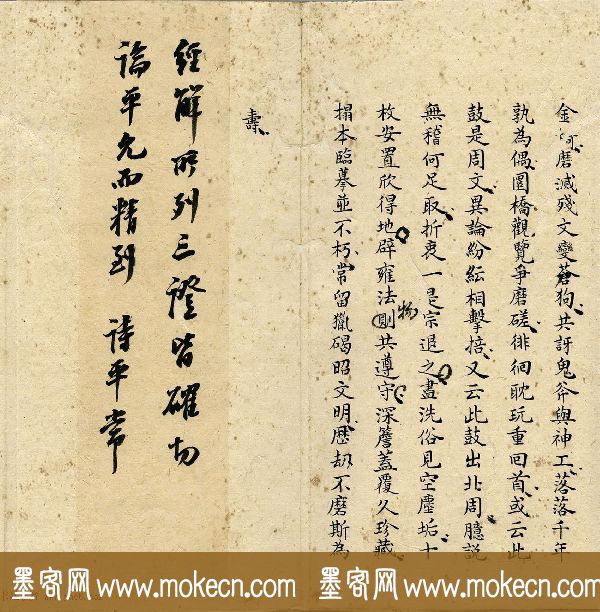 金何磨滅殘文變蒼狗共訝鬼斧與神工落落千年
孰為偶圜橋觀覽爭磨磋徘徊眈玩重回首或云此
鼓是周文異論紛紜相擊掊又云此鼓出北周臆說
無稽何足取折衷一是宗退之盡洗俗見空塵垢十
枚安置欣得地辟雍法則共遵守深簷蓋覆久珍藏
搨本臨摹並不朽常留獵碣昭文明歷劫不磨斯為
壽
經解所列三證皆確切
論平允而精到 詩平常
墨客网 www.mokecn.com 墨客网 www.mokecn.com